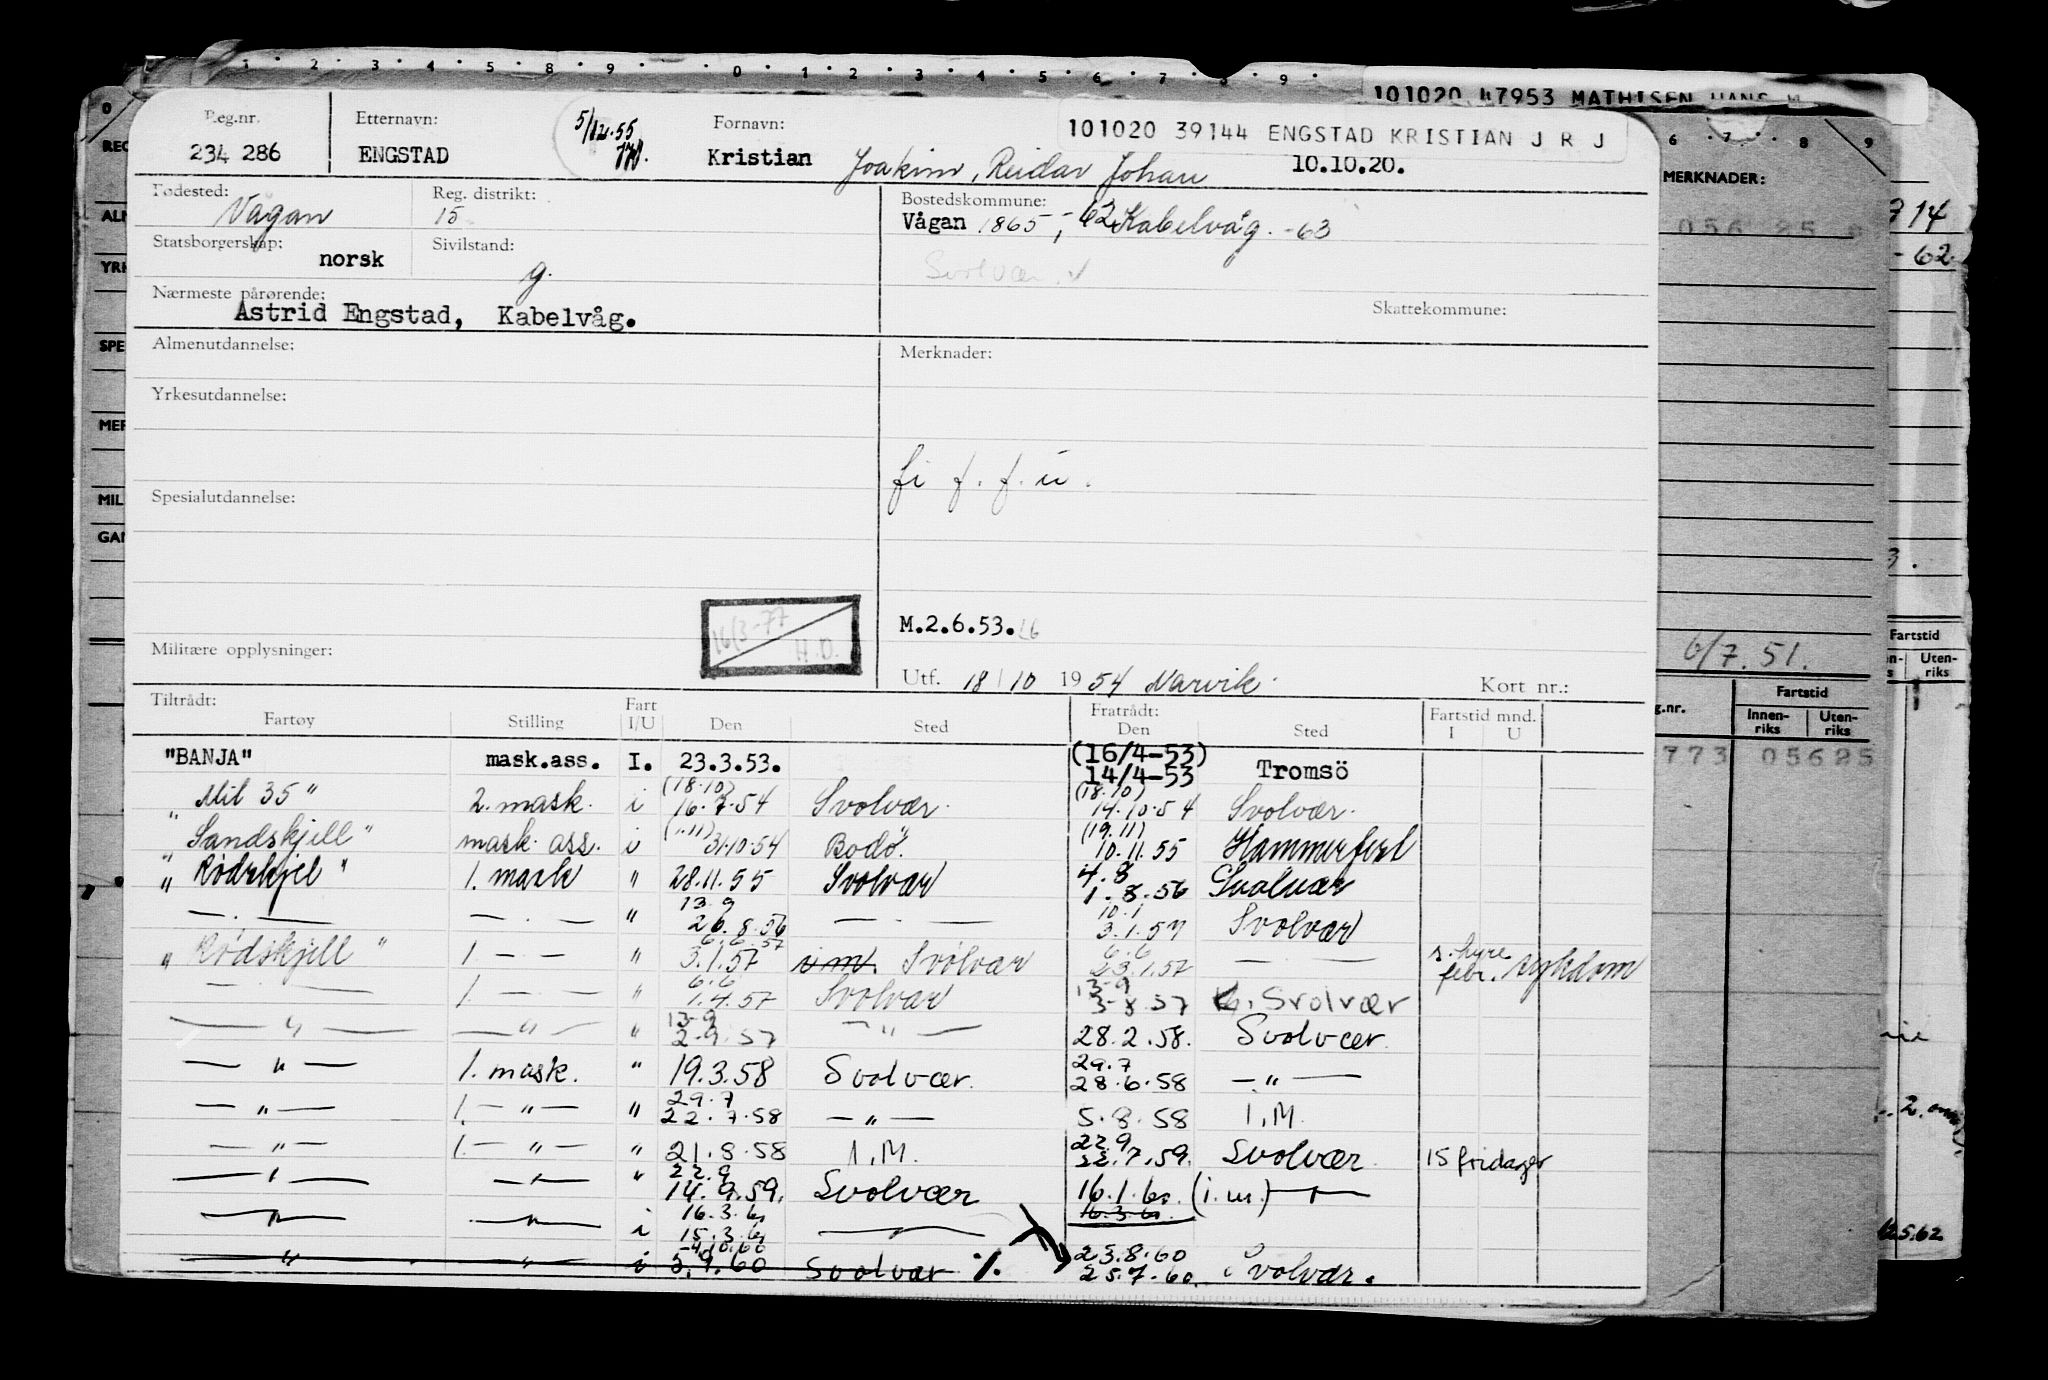 1 2 3 4 5 8 9 0 1 2 3 4 5 6 7 8 9
101020 47953 MATHISEN HANS M
Reg.nr. Etternavn: 5/12.55 Fornavn: 101020 39144 ENGSTAD KRISTIAN J R J
234 286 ENGSTAD Kristian Joakim, Reidar Johan 10.10.20.
Fødested: Vågan Reg. distrikt: 15 Bostedskommune: Vågan 1865, -62 Kabelvåg. -63
Statsborgerskap: norsk Sivilstand: g. Svolvær
Nærmeste pårørende: Skattekommune:
Astrid Engstad, Kabelvåg.
Almenutdannelse: Merknader:
Yrkesutdannelse:
fi f. f. ü.
Spesialutdannelse:
16/3-77 H.O. M.2.6.53.
Militære opplysninger: Utf. 18/10 1954 Narvik. Kort nr.:
Tiltrådt: Fart Fratrådt: Fartstid mnd.
Fartøy Stilling I/U Den Sted Den Sted I U
"BANJA" mask.ass. I. 23.3.53. (16/4-53) 14/4-53 Tromsö
"Mil 35" 2. mask. i (18.10) 16.7.54 Svolvær. (18.10) 14.10.54 Svolvær.
"Sandskjell" mask. ass. i (1.11) 31.10.54 Bodö. (19.11) 10.11.55 Hammerfest
"Rödskjel" 1. mask " 28.11.55 Svolvær 4.8 1.8.56 Svolvær
— . — — . — " 13.9 26.8.56 — . — 10.1 3.1.57 Svolvær
"Rödskjell" 1. — - — " 6.6.57 3.1.57 i.m. Svolvær 6.6 23.1.57 — — s. hyre febr. sykdom
— . — 1. — — " 6.6 1.4.57 Svolvær 13-9 3-8.57 Svolvær
— " — — " — " 13-9 2-9.57 — " — 28.2.58. Svolvær.
— " — 1. mask. " 19.3.58 Svolvær. 29.7 28.6.58 — " —
— " — 1. — " — " 29.7 22.7.58 — " — 5.8.58 I.M.
— " — 1. — " — " 21.8.58 I.M. 22.9 22.7.59. Svolvær. 15 fridager
— " — — " — " 22.9 14.9.59. Svolvær 16.1.60. (i.m.) — " —
— " — — " — i 16.3.60 15.3.60 — " — 16.3.60.
" " i -4.10.60 5.9.60 Svolvær %. 23.8.60 25.7.60. Svolvær.
MERKNADER:
6/7.51.
Fartstid
Innen- riks Uten- riks
773 05625